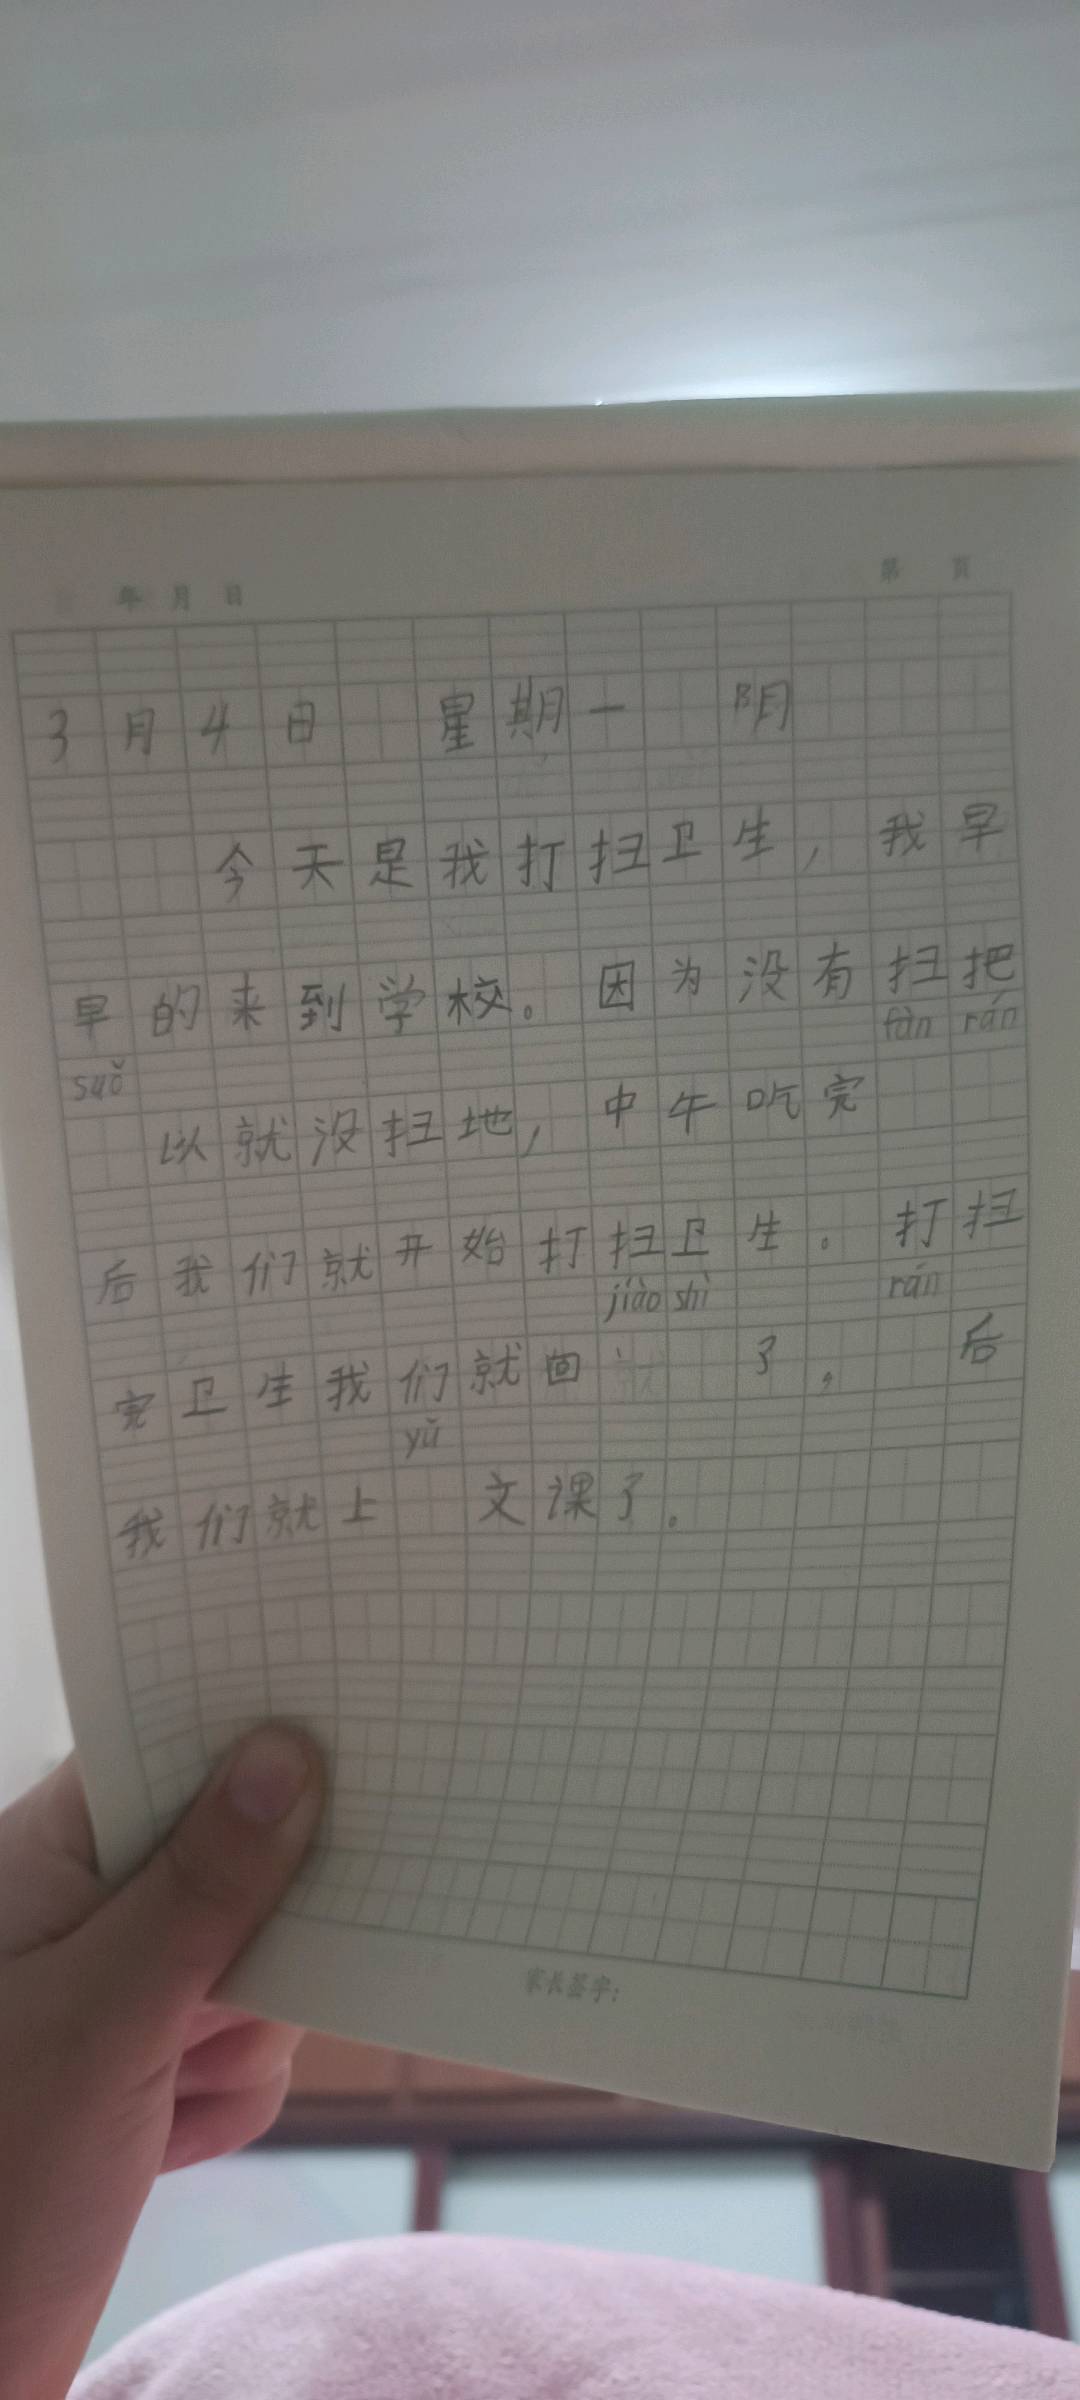 年 月 日
第 页
3月4日 星期一 阴
今天是我打扫卫生，我早
早的来到学校。因为没有扫把
suǒ fàn rán
以就没扫地，中午吃完
后我们就开始打扫卫生。打扫
jiào shì rán
完卫生我们就回 了。 后
yǔ
我们就上 文课了。
家长签字：